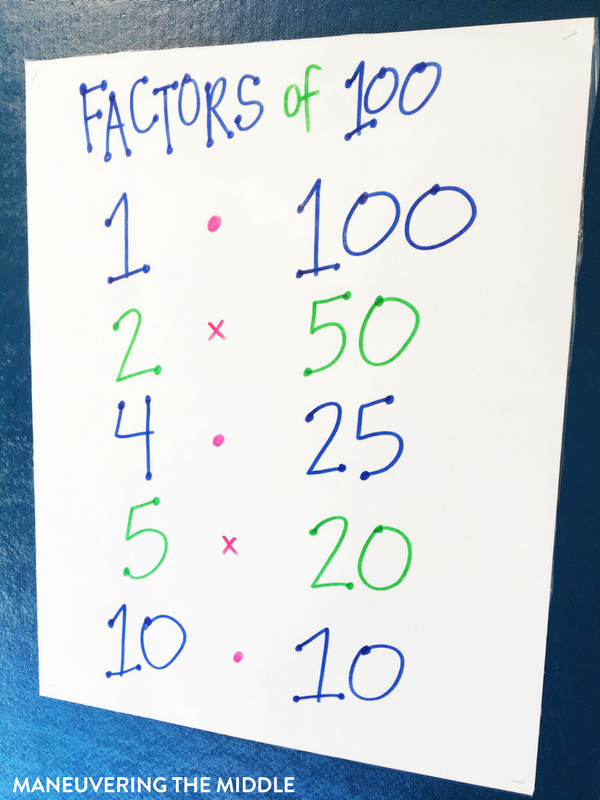 FACTORS of 100
1 • 100
2 × 50
4 • 25
5 × 20
10 • 10
MANEUVERING THE MIDDLE